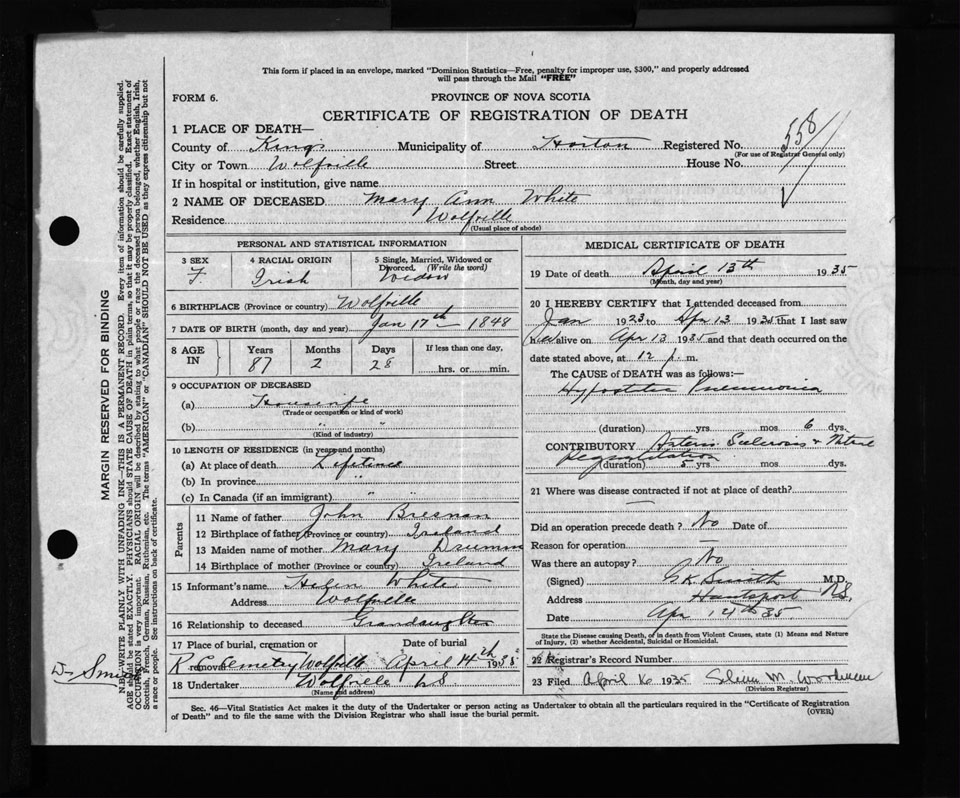 This form if placed in an envelope, marked "Dominion Statistics—Free, penalty for improper use, $300," and properly addressed
will pass through the Mail "FREE"
FORM 6.
PROVINCE OF NOVA SCOTIA
CERTIFICATE OF REGISTRATION OF DEATH
1 PLACE OF DEATH—
County of Kings Municipality of Horton Registered No. 558
(For use of Registrar General only)
City or Town Wolfville Street House No.
If in hospital or institution, give name
2 NAME OF DECEASED Mary Ann White
Residence Wolfville
(Usual place of abode)
PERSONAL AND STATISTICAL INFORMATION
3 SEX 4 RACIAL ORIGIN 5 Single, Married, Widowed or
Divorced. (Write the word)
F. Irish Widow
6 BIRTHPLACE (Province or country) Wolfville
7 DATE OF BIRTH (month, day and year) Jan 17th — 1848
8 AGE IN Years Months Days If less than one day,
87 2 28 hrs. or min.
9 OCCUPATION OF DECEASED
(a) Housewife
(Trade or occupation or kind of work)
(b) " "
(Kind of industry)
10 LENGTH OF RESIDENCE (in years and months)
(a) At place of death Lifetime
(b) In province "
(c) In Canada (if an immigrant) " "
Parents
11 Name of father John Bresnan
12 Birthplace of father (Province or country) Ireland
13 Maiden name of mother Mary Drumm
14 Birthplace of mother (Province or country) Ireland
15 Informant's name Helen White
Address Wolfville
16 Relationship to deceased Grandaughter
17 Place of burial, cremation or removal Date of burial
R C Cemetry Wolfville April 14th 1935
18 Undertaker Wolfville N S
(Name and address)
MEDICAL CERTIFICATE OF DEATH
19 Date of death April 13th 1935
(Month, day and year)
20 I HEREBY CERTIFY that I attended deceased from
Jan 1923 to Apr 13 1935 that I last saw
her alive on Apr 13 1935 and that death occurred on the
date stated above, at 12 p. m.
The CAUSE of DEATH was as follows:—
Hypostatic Pneumonia
(duration) yrs. mos. 6 dys.
CONTRIBUTORY Arterio Sclerosis + Mitral
Regurgitation
(duration) 5 yrs. mos. dys.
21 Where was disease contracted if not at place of death?
—
Did an operation precede death? No Date of
Reason for operation —
Was there an autopsy? No
(Signed) G.K. Smith M.D.
Address Hantsport N.S.
Date Apr 14th 35
State the Disease causing Death, or in death from Violent Causes, state (1) Means and Nature
of Injury, (2) whether Accidental, Suicidal or Homicidal.
22 Registrar's Record Number
23 Filed April 16 1935 M. Woodman
(Division Registrar)
Sec. 46—Vital Statistics Act makes it the duty of the Undertaker or person acting as Undertaker to obtain all the particulars required in the "Certificate of Registration
of Death" and to file the same with the Division Registrar who shall issue the burial permit.
(OVER)
MARGIN RESERVED FOR BINDING
N.B.—WRITE PLAINLY WITH UNFADING INK—THIS IS A PERMANENT RECORD. Every item of information should be carefully supplied.
AGE should be stated EXACTLY. PHYSICIANS should STATE CAUSE OF DEATH in plain terms, so that it may be properly classified. Exact statement of
OCCUPATION is very important. RACIAL ORIGIN will be described by stating to what people or race the deceased person belonged, whether English, Irish,
Scottish, French, German, Russian, Ruthenian, etc. The terms "AMERICAN" or "CANADIAN" SHOULD NOT BE USED as they express citizenship but not
a race or people. See instructions on back of certificate.